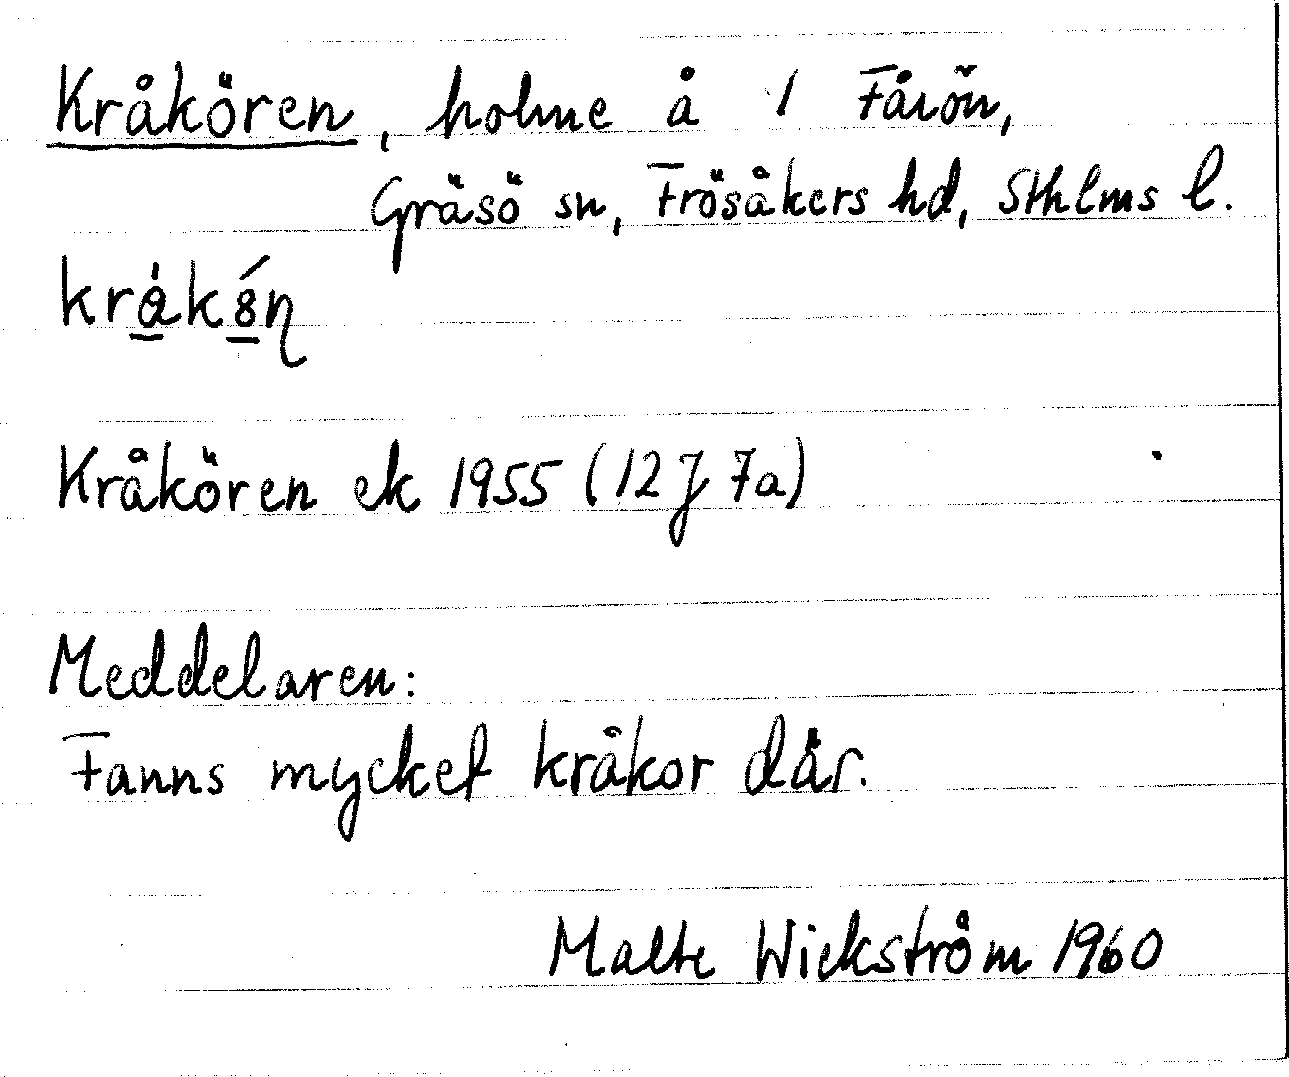 Kråkören, holme å 1 Fåröň,
Gräsö sn, Frösåkers hd, Sthlms l.
Kråkören ek 1955 (12 J 7a)
Meddelaren:
Fanns mycket kråkor där.
Malte Wickström 1960